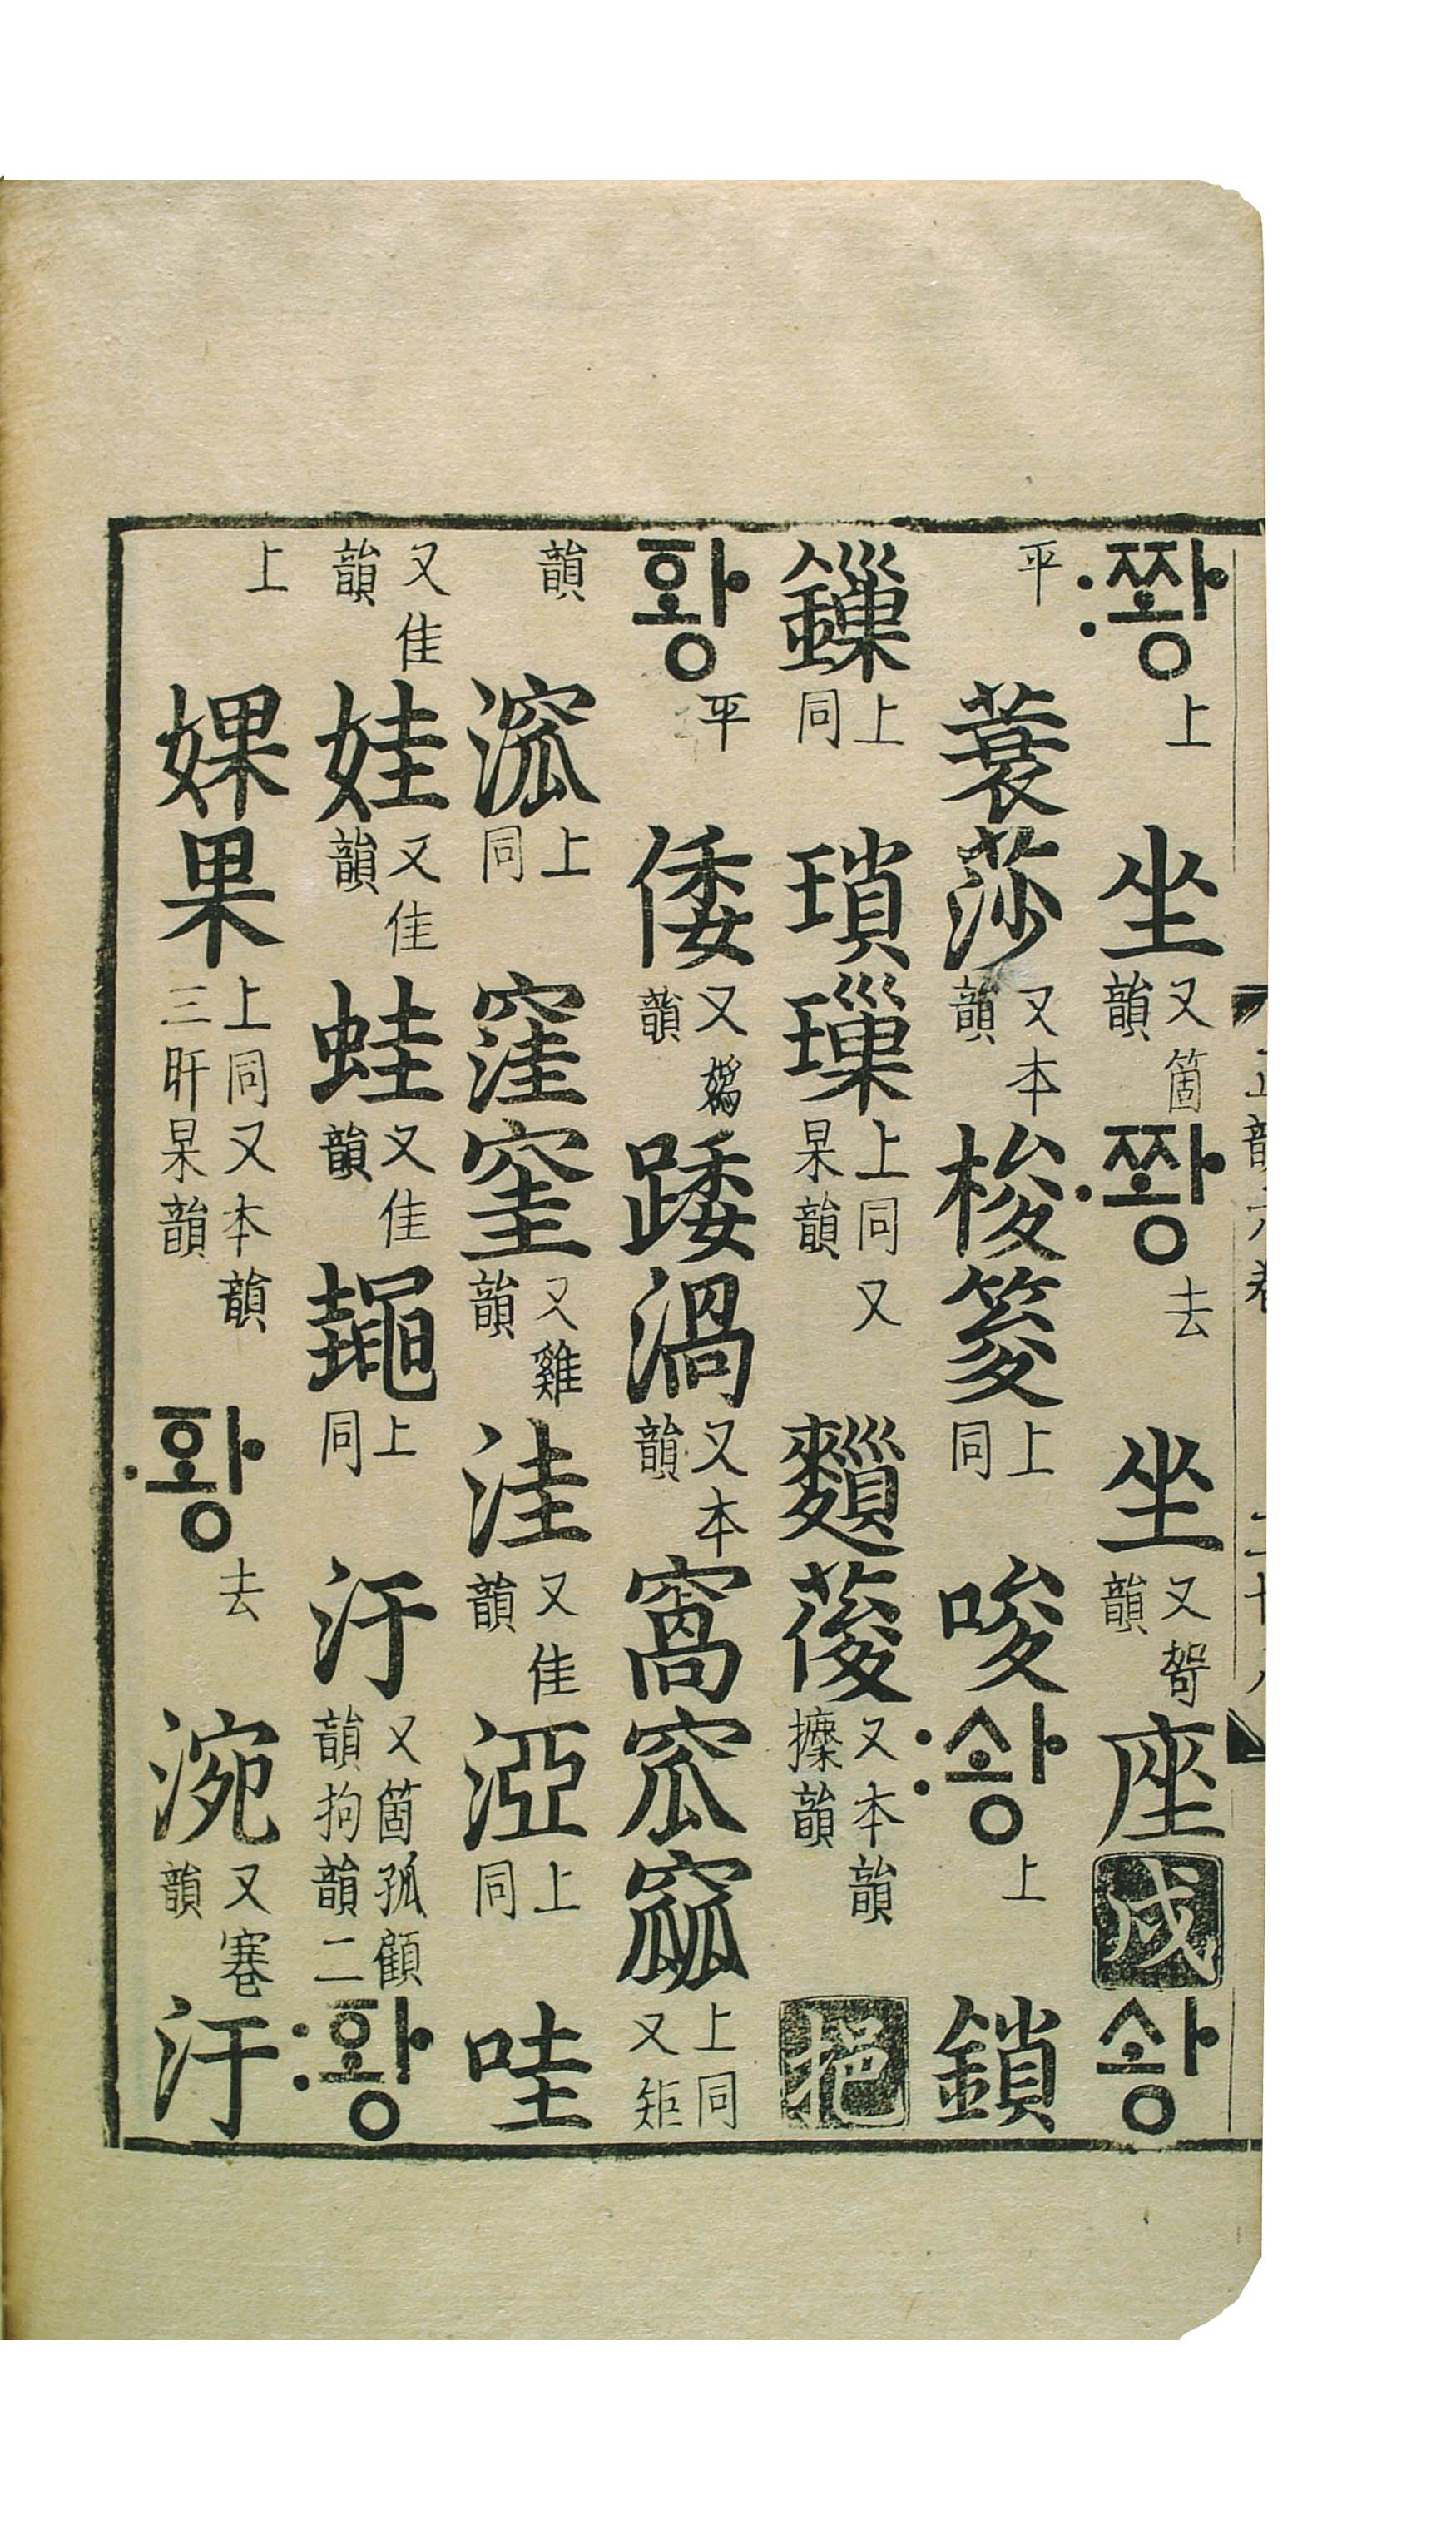 쫭〯上坐又箇韻쫭〮去坐又韻座戌솽
平蓑莎又本韻梭上同唆솽〯上鎖
鏁上同瑣璅上同又杲韻葰又本韻韻挹
ᅙᅪᆼ平倭又嬀韻踒渦又本韻窩窊窳上同又矩
韻溛上同窪窐又雞韻洼又佳韻上同哇
又佳韻娃又佳韻蛙又佳韻鼃上同汙又箇孤顧韻拘韻二ᅙᅪᆼ〯
上婐果上同又本韻三杲韻ᅙᅪᆼ〮去涴又寋韻汙